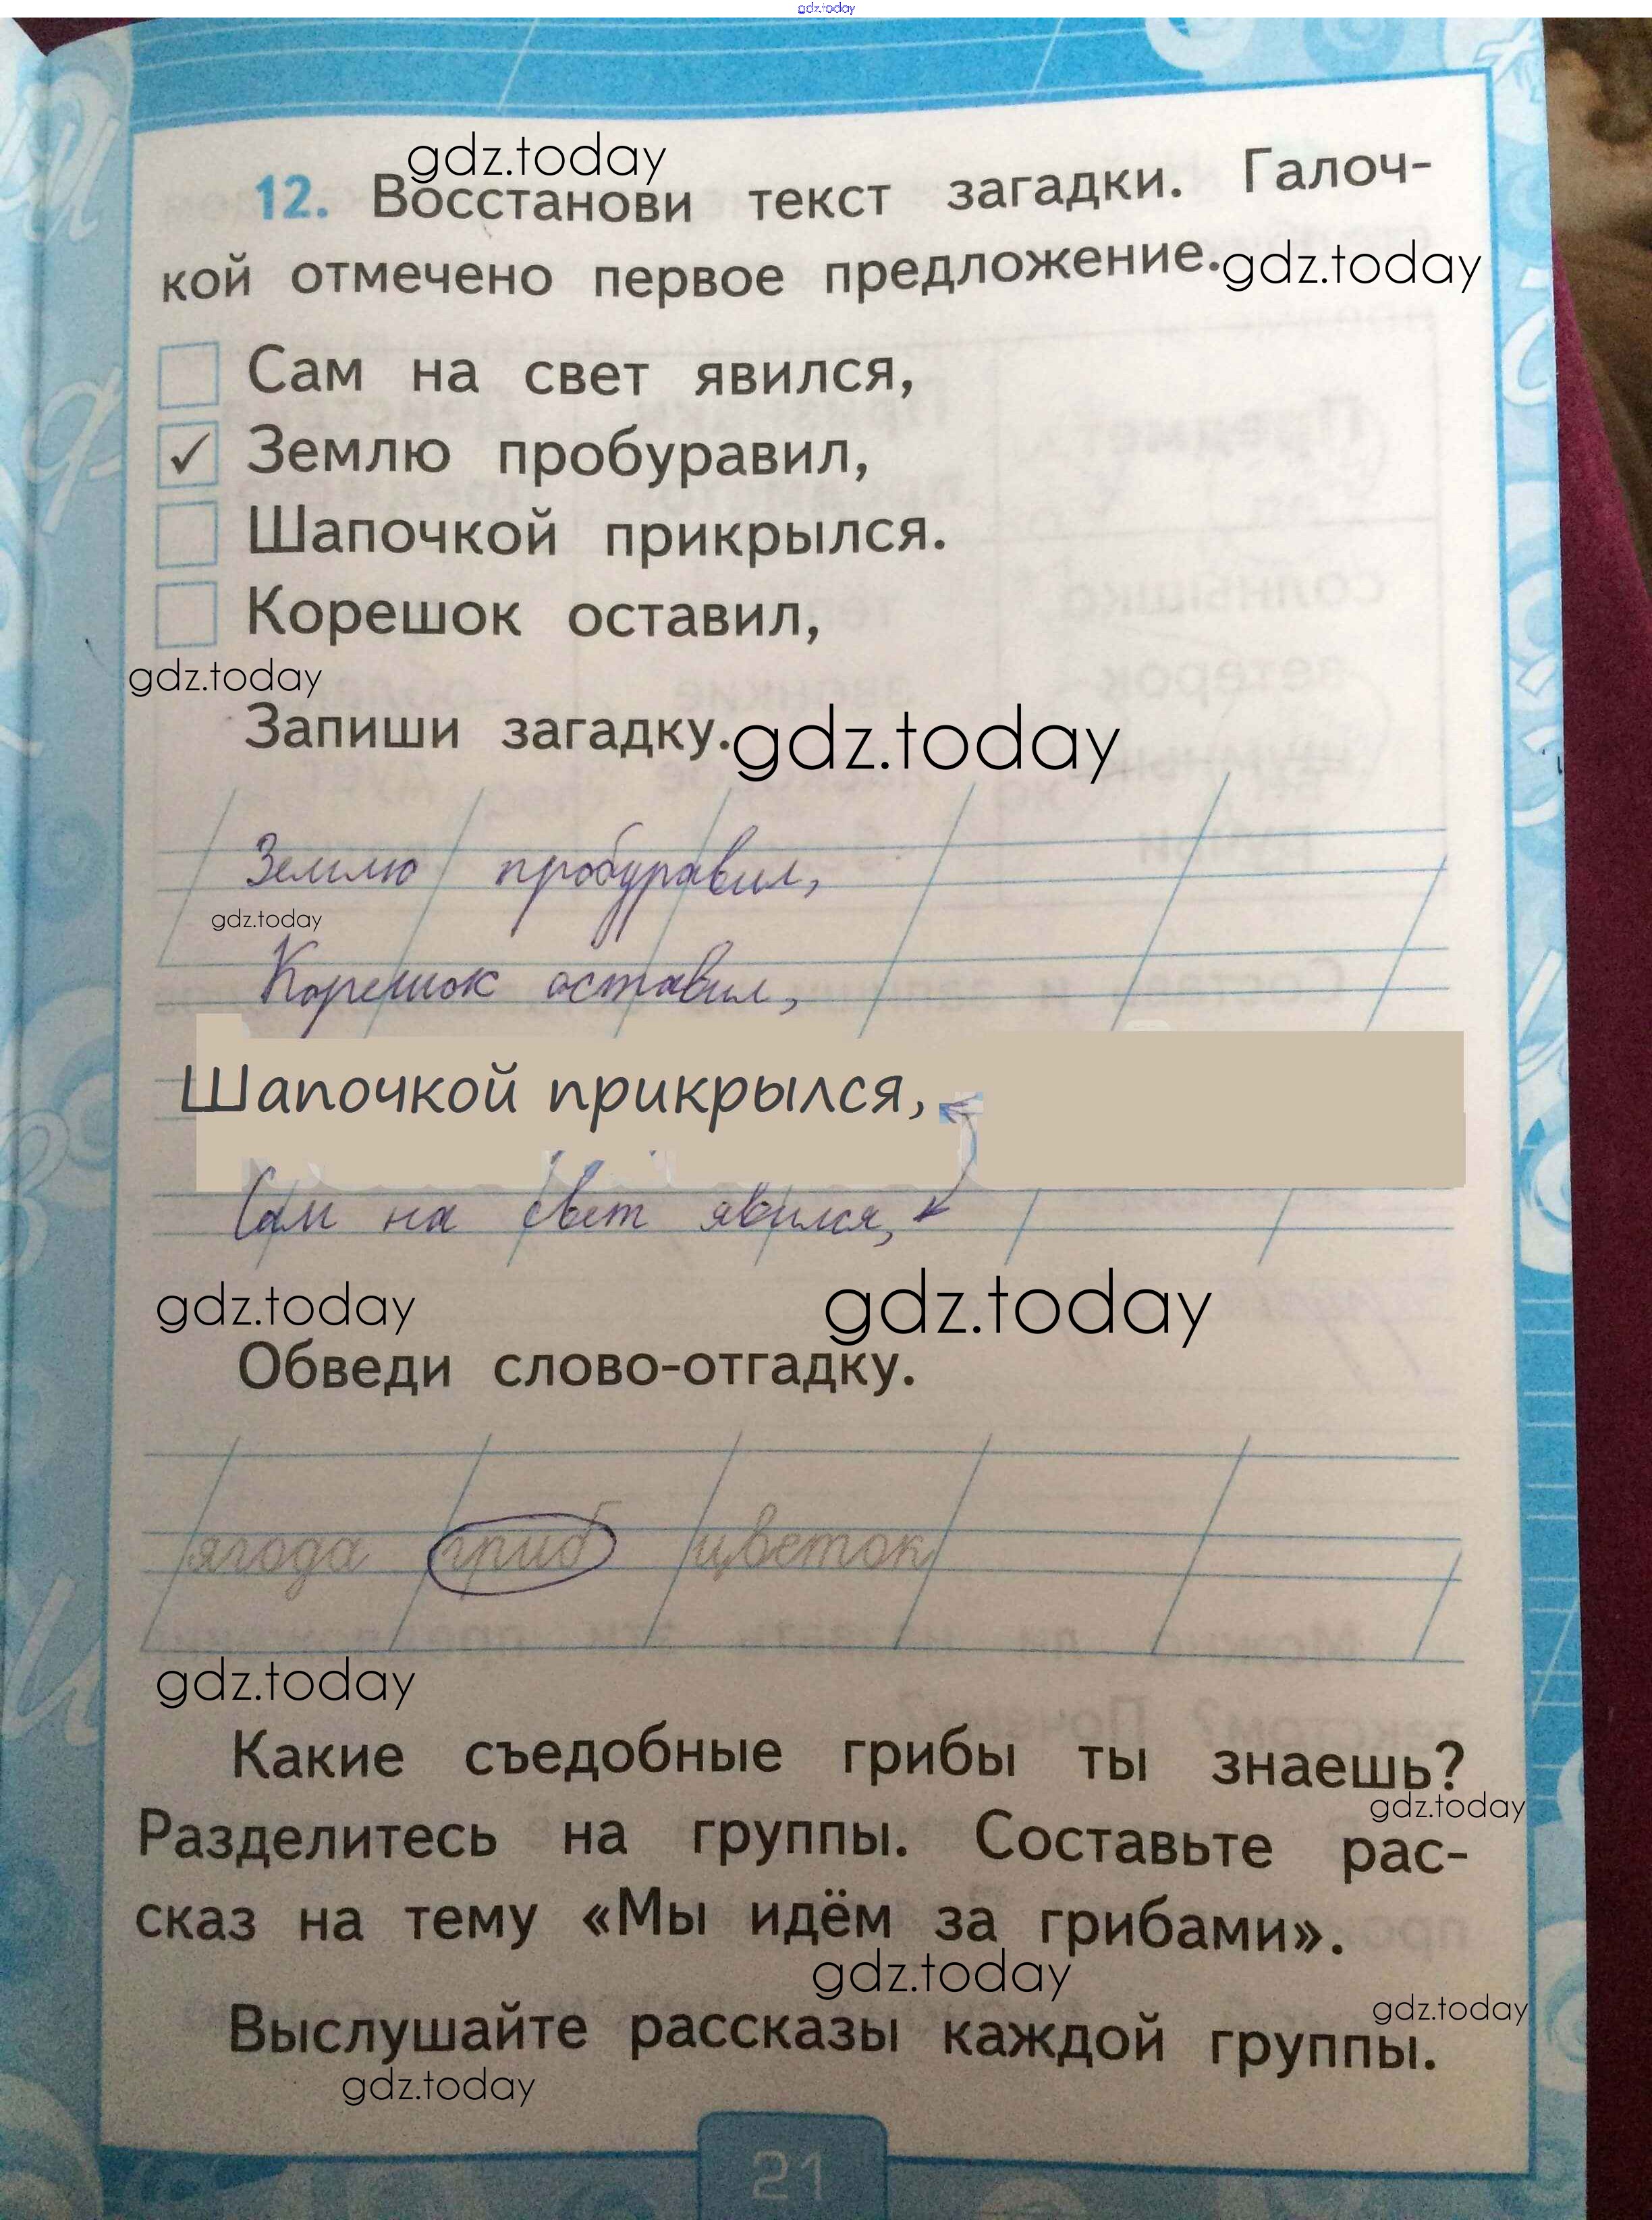 gdz.today
gdz.today
12. Восстанови текст загадки. Галоч-
кой отмечено первое предложение.
gdz.today
Сам на свет явился,
✓ Землю пробуравил,
Шапочкой прикрылся.
Корешок оставил,
gdz.today
Запиши загадку.
gdz.today
Землю пробуравил,
gdz.today
Корешок оставил,
Шапочкой прикрылся,
Сам на свет явился,
gdz.today
gdz.today
Обведи слово-отгадку.
ягода гриб цветок
gdz.today
Какие съедобные грибы ты знаешь?
gdz.today
Разделитесь на группы. Составьте рас-
сказ на тему «Мы идём за грибами».
gdz.today
gdz.today
Выслушайте рассказы каждой группы.
gdz.today
21